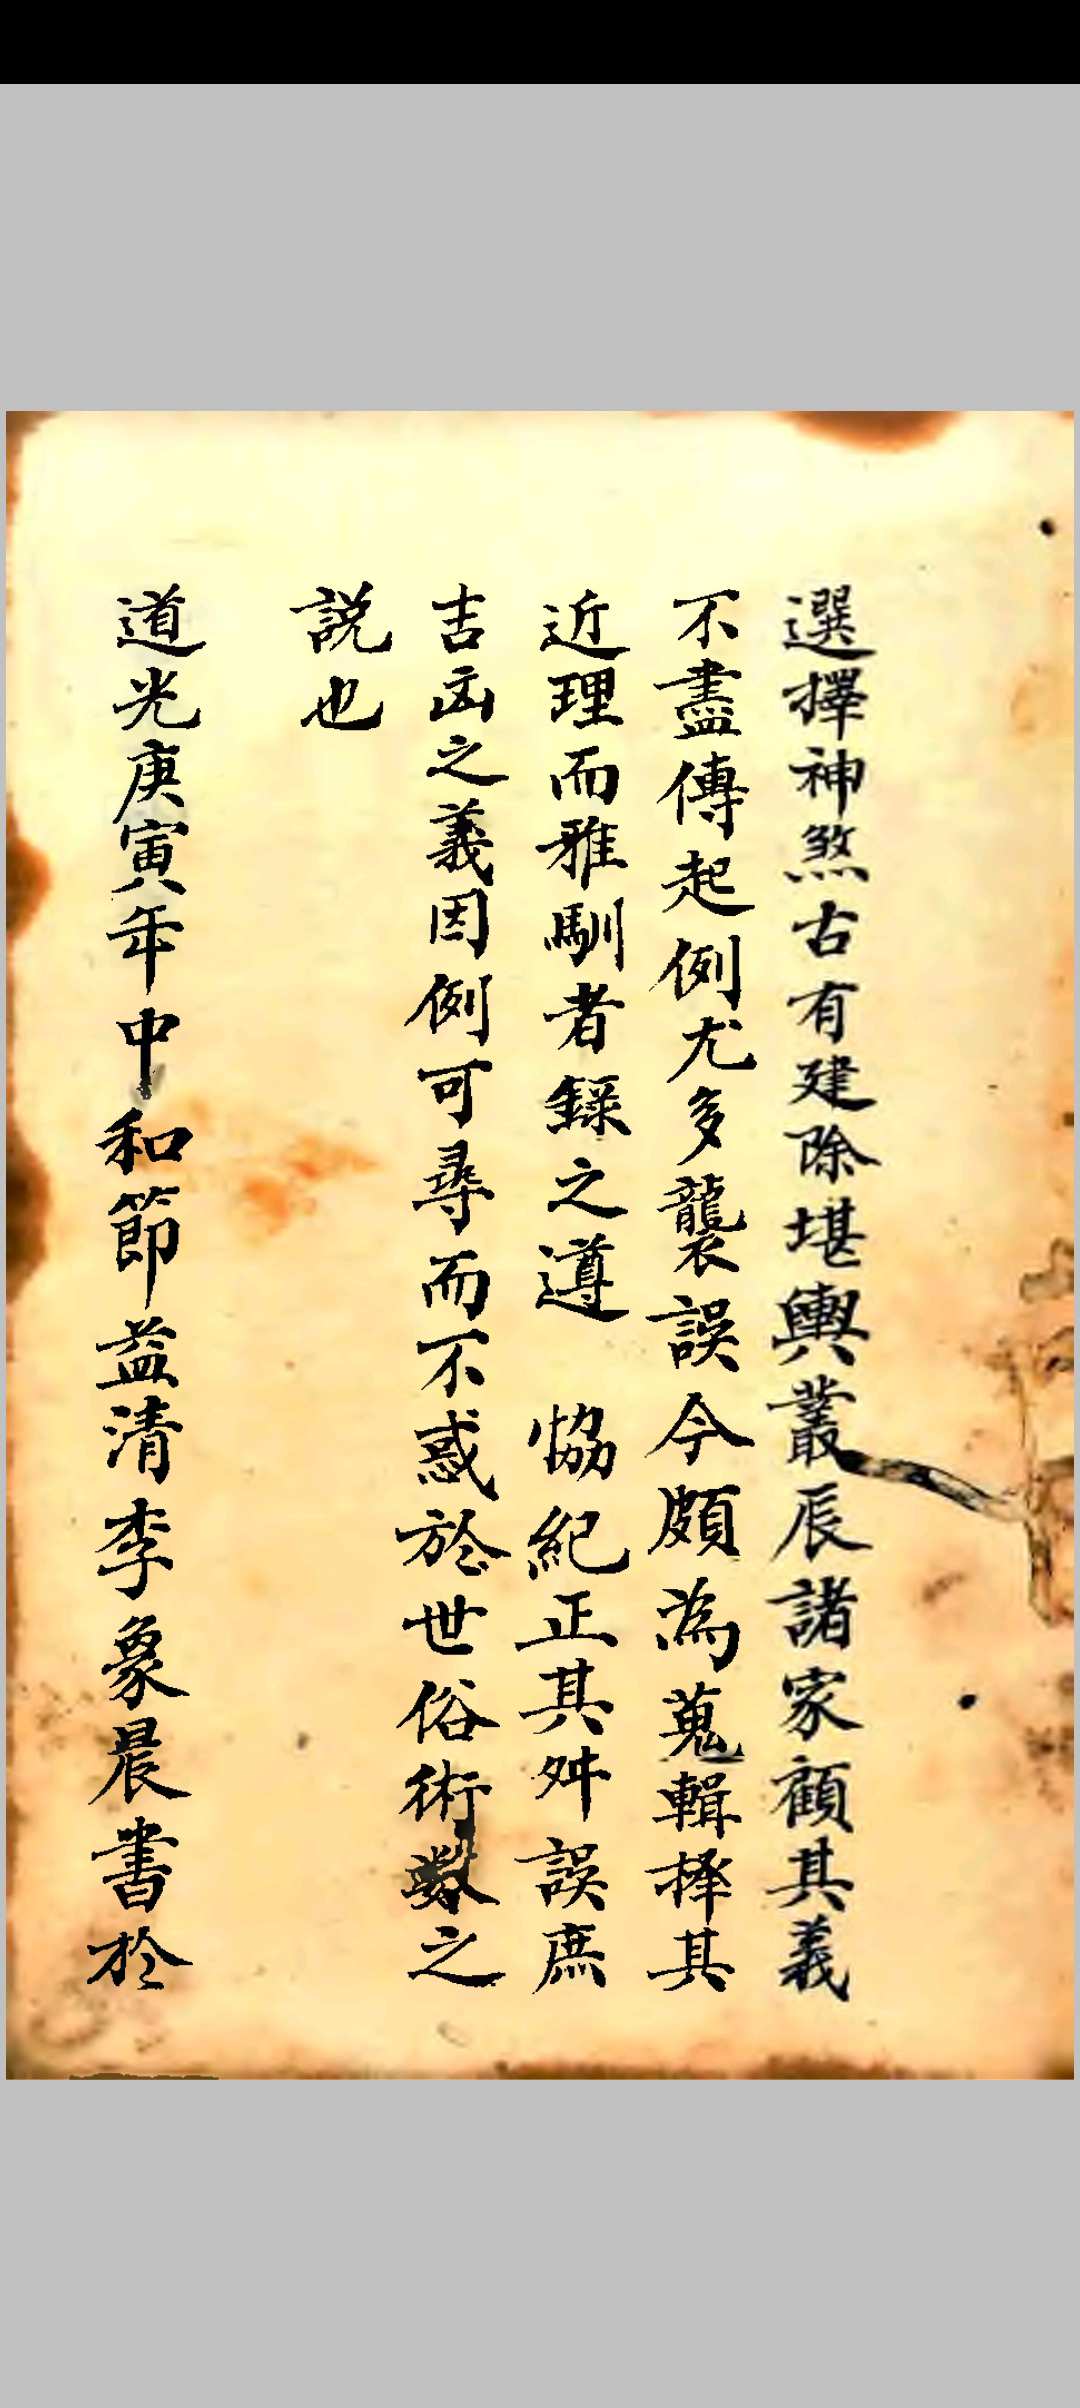 選擇神煞古有建除堪輿叢辰諸家顧其義
不盡傳起例尤多襲誤今頗為蒐輯擇其
近理而雅馴者錄之遵 恊紀正其舛誤庶
吉凶之義因例可尋而不惑於世俗術數之
說也
道光庚寅年中和節益清李象晨書於